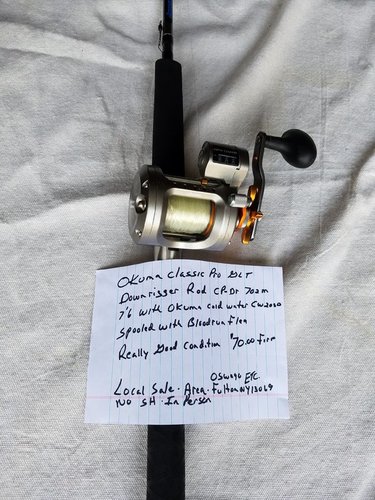 Okuma Classic Pro GLT
Downrigger Rod CP-DR 702m
7'6 with Okuma Cold water CW2030
Spooled with Bloodrun Flea
Really Good Condition $70.00 Firm
Oswego Etc.
Local Sale. Area. Fulton NY 13069
NO SH. In Person